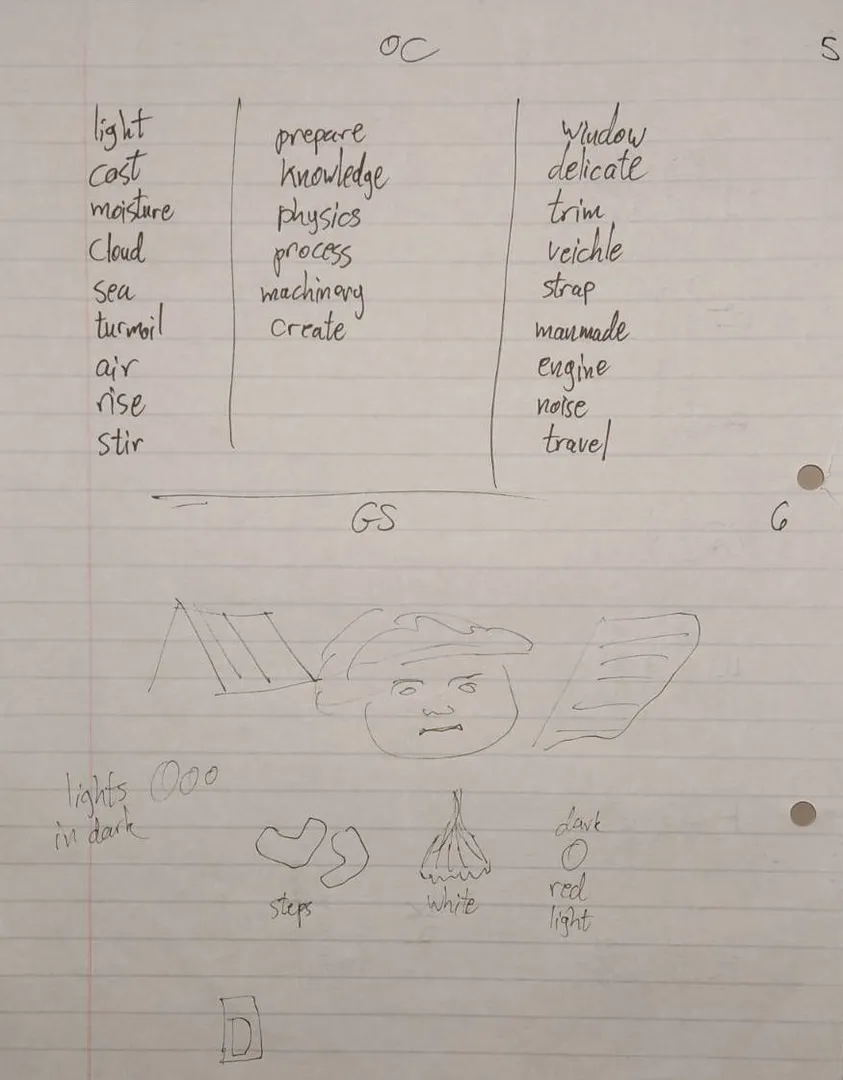 OC
5
light
cost
moisture
Cloud
sea
turmoil
air
rise
stir
prepare
knowledge
physics
process
machinery
Create
window
delicate
trim
veichle
strap
manmade
engine
noise
travel
GS
6
lights
in dark
steps
white
dark
red
light
D